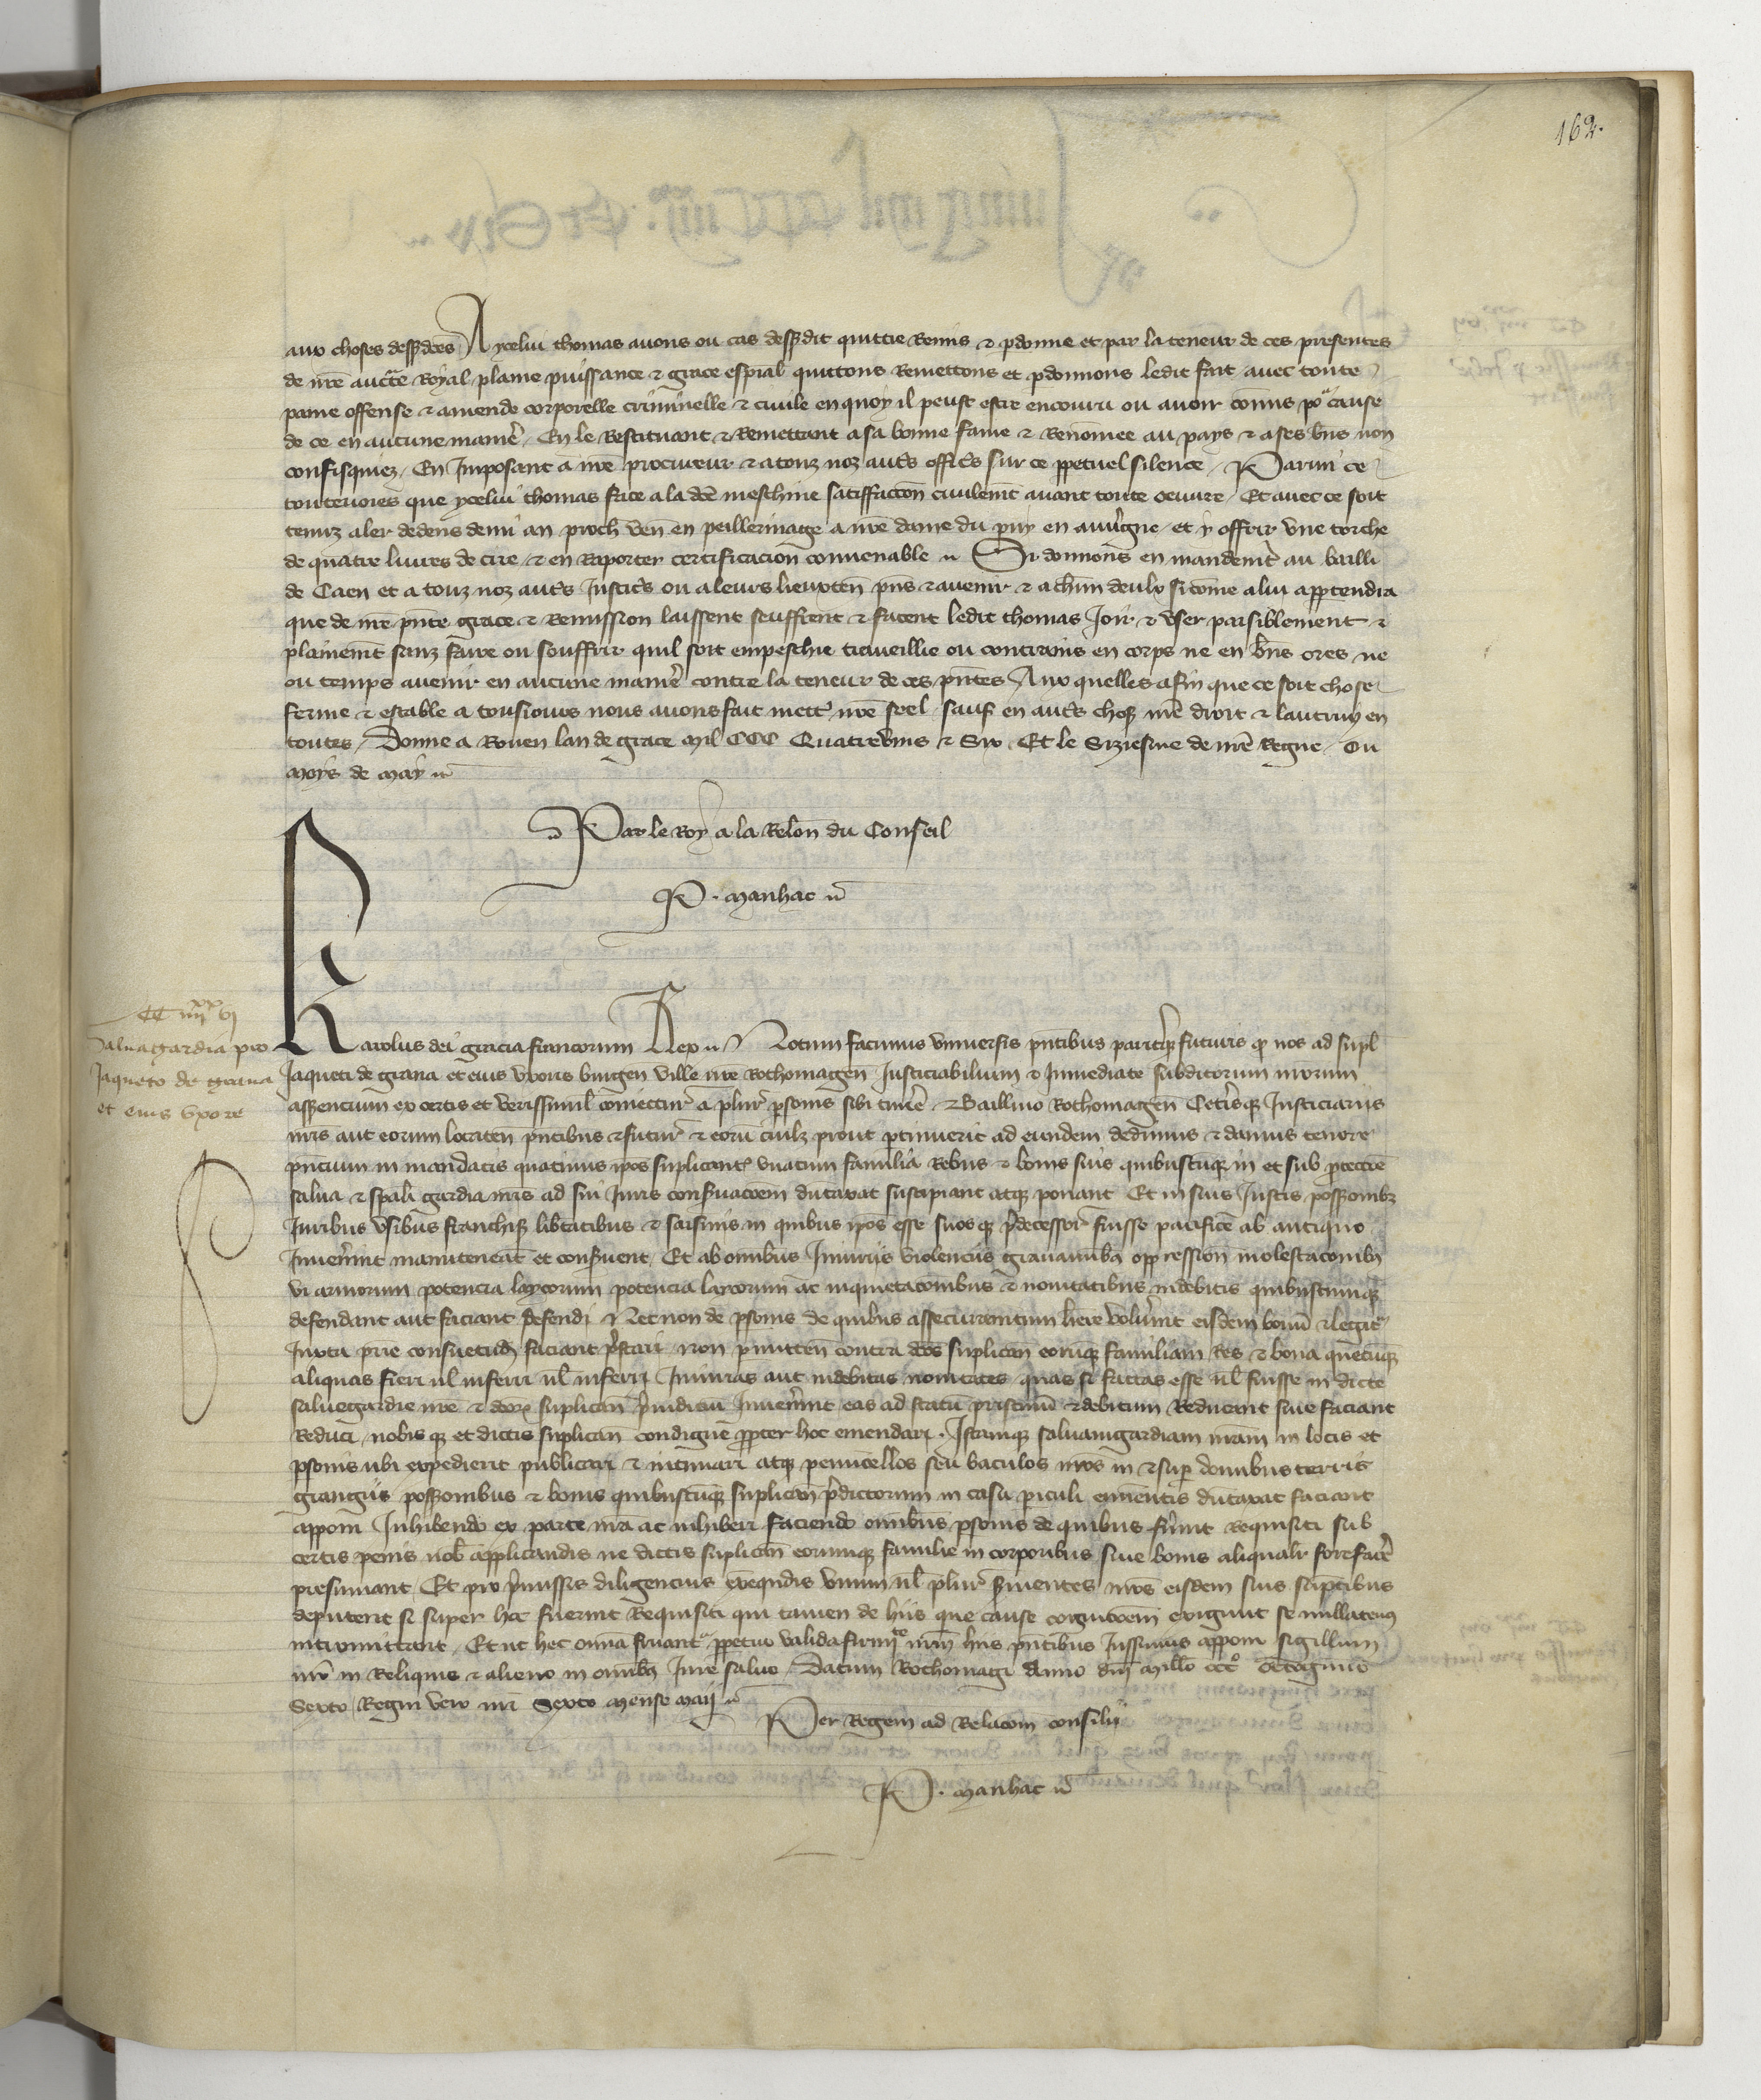 162.
aux choses dessusdictes A ycelui thomas auons ou cas dessusdit quictie Remis & pdonne et par la teneur de ces presentes
de nre aucte Royal plaine puissance & grace espial quictons Remettons et pdonnons ledit fait auec toute
paine offense & amende corporelle criminelle & ciuile en quoy il peust estre encouru ou auoir commis po cause
de ce en aucune manie En le Restituant & Remettant a sa bonne fame & Renommee au pays & a ses bns non
confisquiez En Imposant a nre procureur & a touz noz autrs offics sur ce ppetuel silence Parmi ce
touteuoies que ycelui thomas face a la dce meschine satiffaccon ciuilemt auant toute oeuure Et auec ce soit
tenuz aler dedens demi an proch ven en peillerinage a nre dame du puy en auuigne et y offrir vne torche
de quatre liures de cire & en Raporter certificacion conuenable Si donnons en mandemt au bailli
de Caen et a touz noz autrs Justics ou a leurs lieuxten pns & auenir & a chun deulx si come a lui apptendra
que de nre pnte grace & Remission laissent seuffrent & facent ledit thomas Joir & vser paisiblement &
plainemt sanz faire ou souffrir quil soit empeschie trauueillie ou contrains en corps ne en bns ores ne
ou temps auenir en aucune manie contre la teneur de ces pntes Aux quelles afin que ce soit chose
ferme & estable a tousiours nous auons fait mettr nre seel sauf en autrs choses nre droit & lautruy en
toutes Donne a Rouen lan de grace Mil CCC Quatrevins & Six Et le Siziesme de nre Regne Ou
moys de may
Par le Roy a la Relon du Conseil
P. Manhac
CC iiijxx vj
Saluagardia pro
Jaqueto de grana
et eius vxore
Karolus dei gracia francorum Rex Notum facimus vniuersis pntibus paritq futuris q nos ad supl
Jaqueti de grana et eius vxoris burgen ville nre Rothomagen Justiciabilium & Inmediate subditorum nrorum
asserencium ex certis et verissimil coniectur a plur psonis sibi time & Baillino Rothomagen Cetisq Justiciariis
nris aut eorum locaten pntibus & futur & eoru cuilz prout ptinuerit ad eundem dedimus & damus tenore
pncium in mandatis quatinus ipos suplicant vnacum familia Rebus & bonis suis quibuscuq in et sub proteccoe
salua & spali gardia nris ad sui Juris conseruacoem dutaxat suscipiant atq ponant Et in suis Justis possessionibz
Juribus vsibus franchis libtatibus & saisinis in quibus ipos esse suosq predecessor fuisse pacifice ab antiquo
Inuenint manuteneat et conseruent Et ab omnibus Iniuriis violenciis grauaminibz oppression molestacionibz
vi armorum potencia laycorum potencia laycorum ac inquietacionibus & nouitatibus indebitis quibuscumq
defendant aut faciant defendi & Nec non de psonis de quibus assecuramentum here volunt eisdem bonu & legit
Juxta prie consuetud faciant prestari non pmitten contra dcos suplican eorumq familiam Res & bona quecuq
aliquas fieri ul inferri ul inferri Iniurias aut indebitas nouitates quas si factas esse ul fuisse in dicte
saluegardie nre & dcor suplican preiudiciu Inuenint eas ad statu pristinu & debitum Reducant siue faciant
Reduci nobis q et dictis suplican condigne ppter hoc emendari Istamq saluamgardiam nram in locis et
psonis ubi expedierit publicari & intimari atq penuncellos seu baculos nros in & sup domibus terris
grangiis possessionibus & bonis quibuscuq suplican predictorum in casu piculi eminentis dutaxat faciant
apponi Inhibendo ex parte nra ac inhiberi faciendo omnibus psonis de quibus funt Requisiti sub
certis penis nob applicandis ne dictis suplican eorumq familie in corporibus siue bonis aliqualr foreface
presumant Et pro premissis diligencius exequdis vnum ul plur seruientes nros eisdem suis sumptibus
deputent si super hoc fuerint Requisiti qui tamen de hiis que cause cognicoem exigunt se nullatenus
intromittant Et ut hec omnia firuant ppetuo valida firmite nrm hiis pntibus Jussimus apponi sigillum
nro in Reliquis & alieno in omibz Jure saluo Datum Rothomagi Anno dni Millo ccco octogimo
Sexto Regni vero nri Sexto mense Maij
Per Regem ad Relacom consilii
P. Manhac